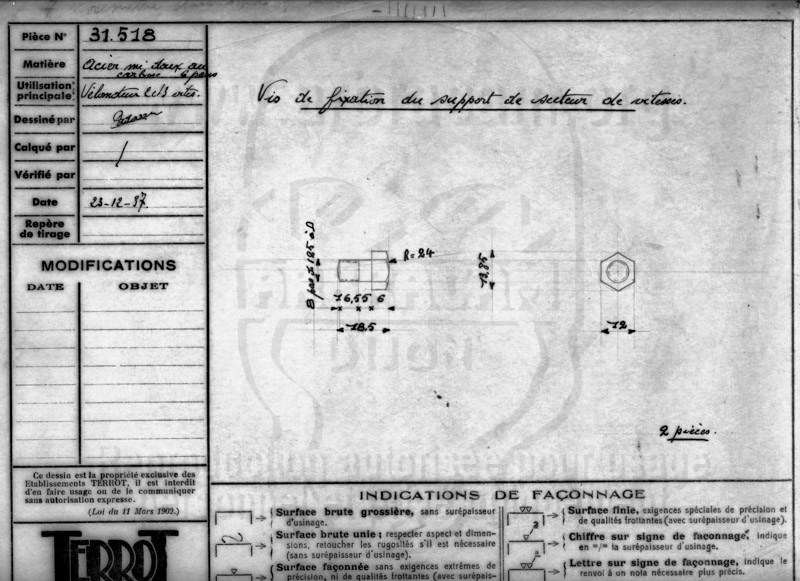 Pièce N° 31.518
Matière Acier mi doux au
carbone 6 pans
Utilisation principale Vélomoteur 2 et 3 vites.
Dessiné par
Calqué par
Vérifié par
Date 23-12-37.
Repère de tirage
MODIFICATIONS
DATE OBJET
Ce dessin est la propriété exclusive des
Etablissements TERROT, il est interdit
d'en faire usage ou de le communiquer
sans autorisation expresse.
(Loi du 11 Mars 1902.)
TERROT
Vis de fixation du support de secteur de vitesses.
R=24
6
18,5
13,85
12
2 pièces.
INDICATIONS DE FAÇONNAGE
Surface brute grossière, sans surépaisseur
d'usinage.
Surface brute unie; respecter aspect et dimen-
sions, retoucher les rugosités s'il est nécessaire
(sans surépaisseur d'usinage).
Surface façonnée sans exigences extrêmes de
précision, ni de qualités frottantes (avec surépais-
Surface finie, exigences spéciales de précision et
de qualités frottantes (avec surépaisseur d'usinage).
Chiffre sur signe de façonnage, indique
en =/= la surépaisseur d'usinage.
Lettre sur signe de façonnage, indique le
renvoi à un nota nécessaire plus précis.